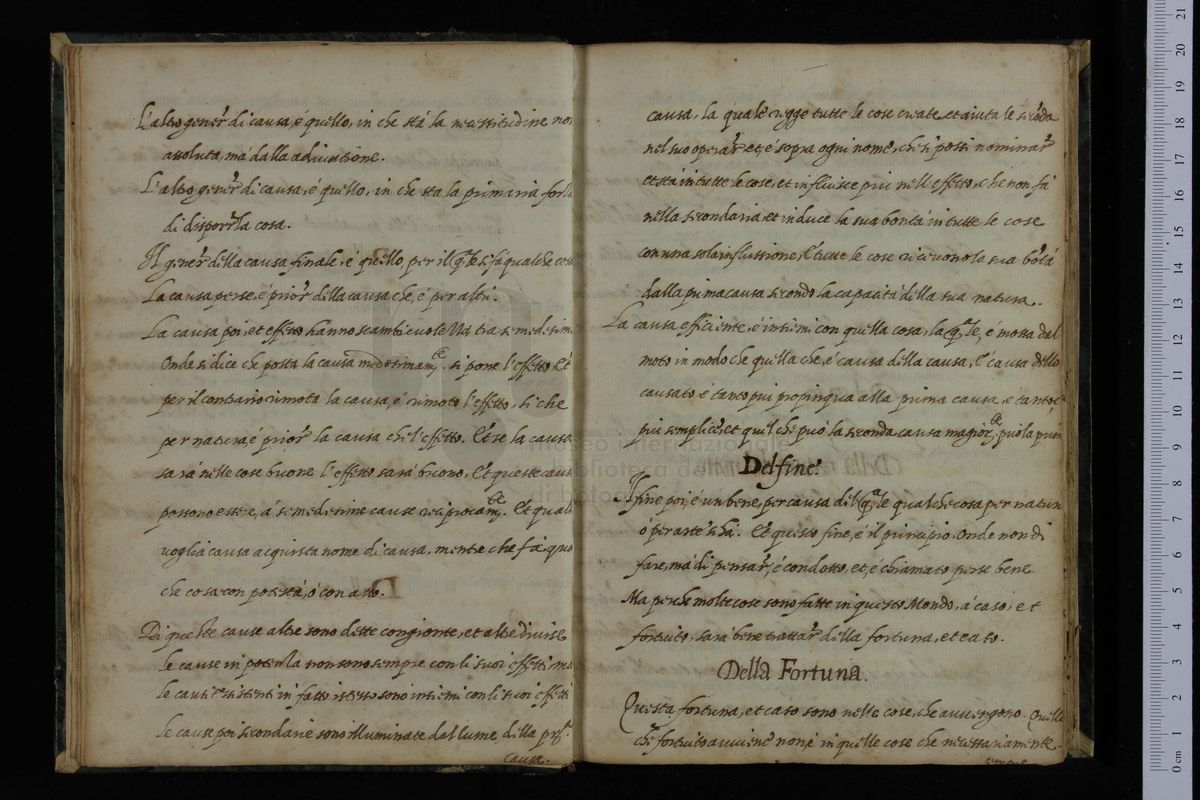 L'altro gener̃ di causa, e quello, in che stà la necessitudine non
assoluta, mà dalla adiuntione.
L'altro gener̃ di causa, é quello, in che sta la primaria forza
di disporr̃ la cosa.
Il gener̃ della causa finale, é quello, per il q̃le si fà qualche cosa
La causa per se, é prior̃ della causa che, é per altri.
La causa poi, et effetto hanno scambieuole tra se medesimi
Onde si dice che posta la causa medesimam.te si pone l'effetto, Et
per il contrario rimota la causa, é rimoto l'effetto, si che
per natura é prior̃ la causa che l'effetto. Et se la causa
sarà nelle cose buone l'effetto sarà buono. Et queste caus
possono essere, à se medesime cause reciprocam.te. Et qual
uoglia causa acquista nome di causa, mentre che fà qual
che cosa con potestà, ó conatto.
Di queste cause altre sono dette congionte, et altre diuise
le cause in potenza non sono sempre con li suoi effetti, mà
le cause esistenti in fatto istesso sono insiemi con li suoi effetti
le cause poi secondarie sono illuminate dal lume della pr.a
causa.
causa, la qual'é regge tutte le cose create, et aiuta le secõda
nel suo operar̃, et, é sopra ogni nome, che si possi nominar̃
et stà in tutte le cose, et influisce piu nell'effetto, che non fà
nella secondaria, et induce la sua bontà in tutte le cose
con una sola influssione, et tutte le cose riceuono la sua bõtà
dalla prima causa secondo la capacità della sua natura.
La causa efficiente, é insiemi con quella cosa, la q̃le, é mossa dal
moto in modo che quella che, é causa della causa, é causa dello
causato, é tanto piu propinqua alla prima causa, é tanto é
piu semplice, et quel che può la seconda causa magior.te può la prim
Del fine.
Il fine poi, é un bene, per causa del q̃le qualche cosa per natura
ó per arte si hà. Et questo fine, é il principio, onde non di
fare, mà di pensar̃, é condotto, et, é chiamato per se bene
Ma perche molte cose sono fatte in questo Mondo, à caso, et
fortuito, sarà bene trattar̃ della fortuna, et caso.
Della Fortuna.
Questa fortuna, et caso sono nelle cose, che auuengono. Quelle
che fortuito auuiene non é in quelle cose che necessariamente
sempre
museo internazionale
biblioteca della
di bologna